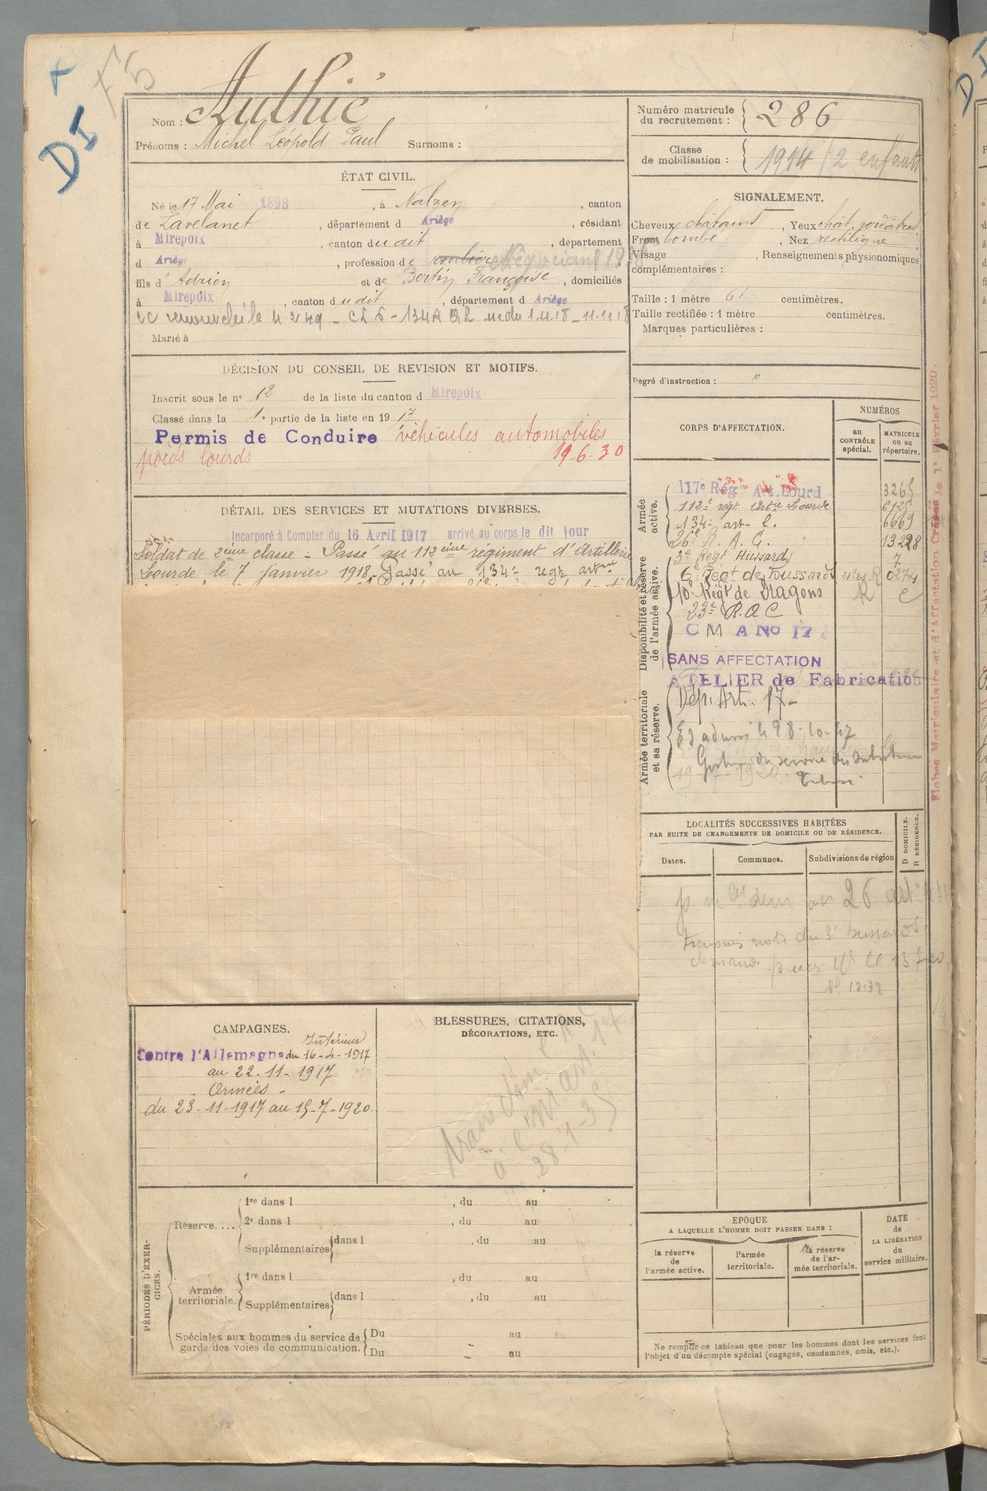 DI
Nom : Authié
Prénoms : Michel Léopold Paul Surnoms :
Numéro matricule du recrutement : 286
Classe de mobilisation : 1914 (2 enfants
ÉTAT CIVIL.
Né le 17 Mai 1898, à Nalzen, canton
de Lavelanet, département d Ariège, résidant
à Mirepoix, canton du dit, département
d Ariège, profession de Négociant
fils d'Adrien et de Bertin Françoise, domiciliés
à Mirepoix, canton du dit, département d Ariège
Marié à
SIGNALEMENT.
Cheveux châtains, Yeux
Front bombé, Nez rectiligne
Visage , Renseignements physionomiques
complémentaires :
Taille : 1 mètre 61 centimètres.
Taille rectifiée : 1 mètre centimètres.
Marques particulières :
Degré d'instruction :
DÉCISION DU CONSEIL DE REVISION ET MOTIFS.
Inscrit sous le n° 12 de la liste du canton d Mirepoix
Classé dans la 1. partie de la liste en 19 17
Permis de Conduire véhicules automobiles
poids lourds 19-6-30
DÉTAIL DES SERVICES ET MUTATIONS DIVERSES.
Incorporé à Compter du 16 Avril 1917 arrivé au corps le dit jour
Soldat de 2ème classe - Passé au 112ème régiment d'Artillerie
Lourde le 7 janvier 1918. Passé au 134e regt art
CORPS D'AFFECTATION.
NUMÉROS
au CONTRÔLE spécial.
MATRICULE ou au répertoire.
Armée active.
117e Rég. Art. Lourd 3265
112e regt Art^ie Lourde
134e art. L. 6669
26e R. A. C.
Disponibilité et réserve de l'armée active.
3e Regt Hussards
6e Regt de Houssards
10e Regt de Dragons
23e R.A.C
C M A No 17
SANS AFFECTATION
ATELIER de Fabrication
Armée territoriale et sa réserve.
Dép. Art. 17-
LOCALITÉS SUCCESSIVES HABITÉES
PAR SUITE DE CHANGEMENTS DE DOMICILE OU DE RÉSIDENCE.
Dates.
Communes.
Subdivisions de région
D DOMICILE. R RÉSIDENCE.
Fiches Matriculaire et d'Affectation Créées le 1er Février 1920.
CAMPAGNES.
Intérieur
Contre l'Allemagne du 16-4-1917
au 22-11-1917
- Armées -
du 23-11-1917 au 15-7-1920.
BLESSURES, CITATIONS,
DÉCORATIONS, ETC.
PÉRIODES D'EXERCICES.
Réserve....
1re dans l , du au
2e dans l , du au
Supplémentaires dans l , du au
Armée territoriale.
1re dans l , du au
Supplémentaires dans l , du au
Spéciales aux hommes du service de garde des voies de communication.
Du au
Du au
EPOQUE
A LAQUELLE L'HOMME DOIT PASSER DANS :
la réserve de l'armée active.
l'armée territoriale.
la réserve de l'armée territoriale.
DATE de LA LIBÉRATION du service militaire.
Ne remplir ce tableau que pour les hommes dont les services font
l'objet d'un décompte spécial (engagés, condamnés, omis, etc.).